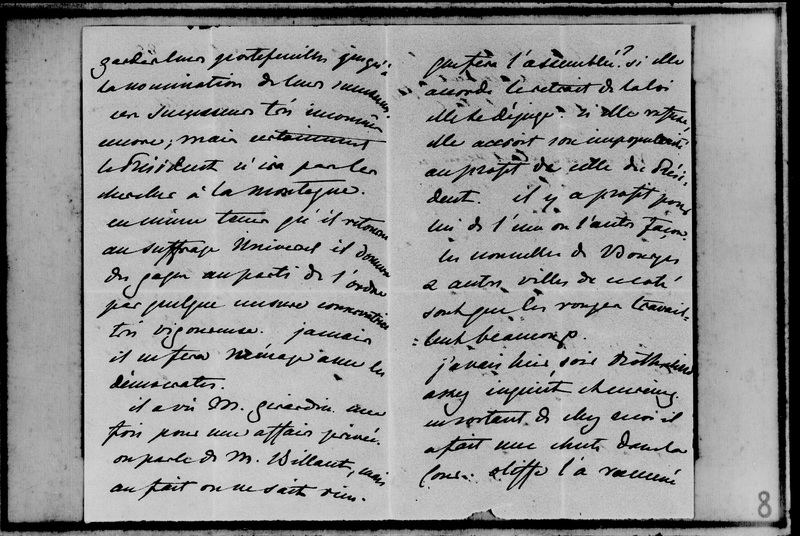 garder leurs portefeuilles jusqu'à
la nomination de leurs successeurs.
ces successeurs très inconnus
encore; mais certainement
le Président n'ira pas les
chercher à la montagne.
en même tems qu'il retourne
au suffrage Universel il donnera
des gages au parti de l'ordre
par quelque mesure conservatrice
très vigoureuse. jamais
il ne fera ménage avec les
démocrates.
il a vu M. Girardin une
fois pour une affaire privée.
on parle de M. Billault, mais
au fait on ne sait rien.
que fera l'assemblée? si elle
accorde le retrait de la loi
elle se déjuge. si elle refuse,
elle accroit son impopularité
au profit de celle du Prési-
dent. il y a profit pour
lui de l'une ou l'autre façon.
les nouvelles de Bourges
& autres villes de ce côté
sont que les rouges travail-
lent beaucoup.
j'avais hier soir Rothschild
assez inquiet
en sortant de chez moi il
a fait une chute dans la
Cour. l'a ramené
8